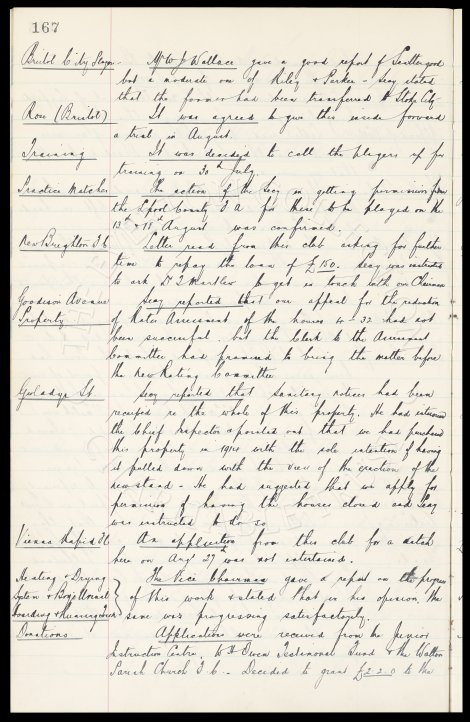 167
Bristol City Players. Mr W. J. Wallace gave a good report of Southergood
but a moderate one of Riley & Parker - Secy stated
that the former had been transferred to Stoke City
Rose (Bristol) It was agreed to give this inside forward
a trial in August.
Training It was decided to call the players up for
training on 30th July.
Practice Matches The action of the Secy in getting permission from
the L'pool County F A for these to be played on the
13th & 18 August was confirmed.
New Brighton F.C. Letter read from this club asking for further
time to repay the loan of £150. Secy was instructed
to ask Dr J. Mardlew to get in touch with our Chairman
Goodison Avenue Secy reported that our appeal for the reduction
Property of Rates Assessment of the houses 40-32 had not
been successful, but the Clerk to the Assessment
Committee had promised to bring the matter before
the New Rating Committee
Gwladys St. Secy reported that sanitary notices had been
received re the whole of this property. He had interviewed
the Chief Inspector & pointed out that we had purchased
this property in 1914 with the sole intention of having
it pulled down with the view of the erection of the
new stand - He had suggested that we apply for
permission of having the houses closed and Secy
was instructed to do so.
Vienna Rapid F.C. An application from this club for a match
here on Augt 27th was not entertained.
Heating & Drying The Vice Chairman gave a report on the progress
System & of this work & stated that in his opinion, the
same was progressing satisfactorily.
Donations Applications were received from the Junior
Instruction Centre, W. H. Owen Testimonial Fund & the Walton
Parish Church F.C. - Decided to grant £2.2.0 to the